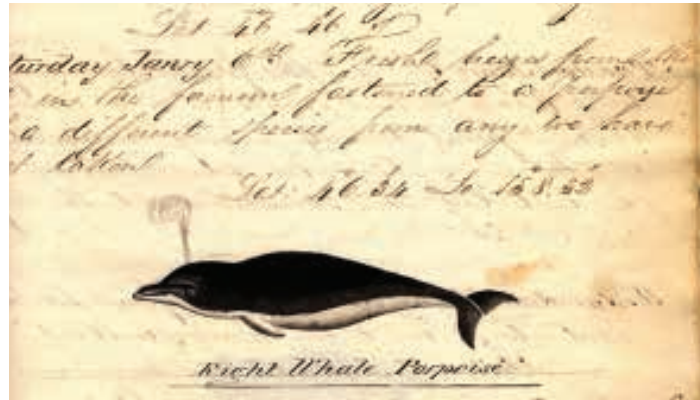 Lat 46 46
turday Janry 6th Fresh breezes from the
in the forenoon fastened to a porpoise
a different species from any we have
Lat. 46.34 Lo. 158.52
Right Whale Porpoise